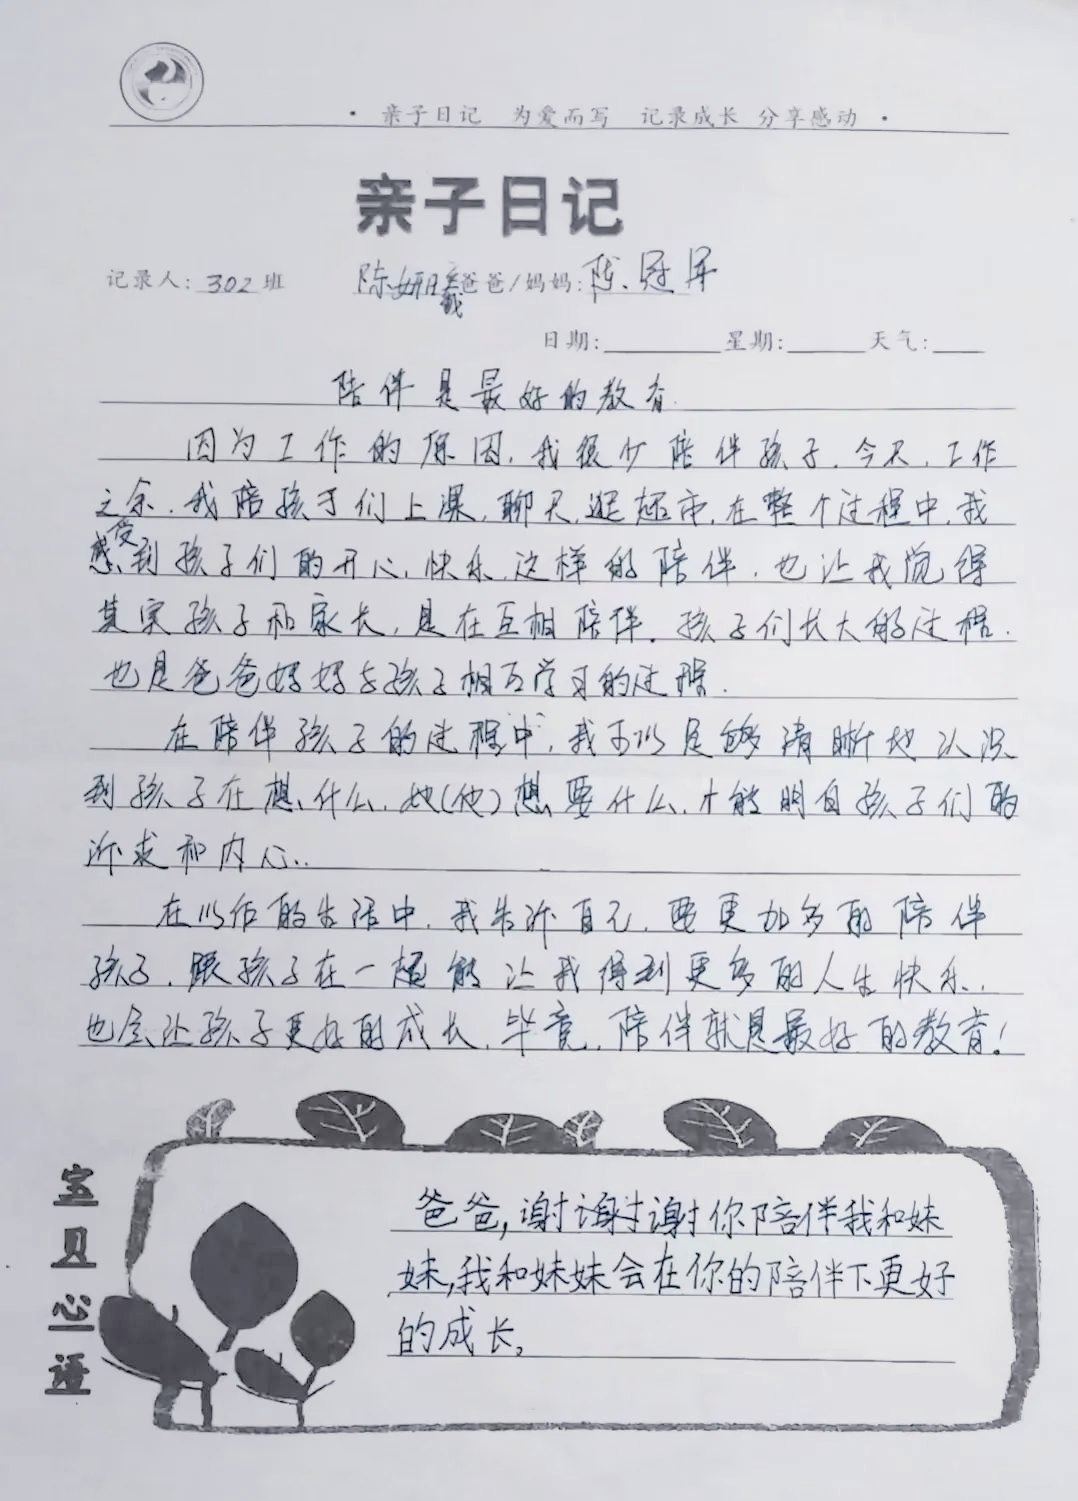 · 亲子日记 为爱而写 记录成长 分享感动 ·
亲子日记
记录人: 302 班 陈妍曦 爸爸/妈妈: 陈冠军
日期: 星期: 天气:
陪伴是最好的教育
因为工作的原因,我很少陪伴孩子.今天,工作
之余,我陪孩子们上课,聊天,逛超市,在整个过程中,我
感受到孩子们的开心,快乐,这样的陪伴,也让我觉得
其实孩子和家长,是在互相陪伴.孩子们长大的过程.
也是爸爸妈妈与孩子相互学习的过程.
在陪伴孩子的过程中,我可以足够清晰地认识
到孩子在想什么,她(他)想要什么,才能明白孩子们的
诉求和内心..
在以后的生活中,我告诉自己,要更加多的陪伴
孩子,跟孩子在一起能让我得到更多的人生快乐,
也会让孩子更好的成长,毕竟,陪伴就是最好的教育!
宝贝心语
爸爸,谢谢谢你陪伴我和妹
妹,我和妹妹会在你的陪伴下更好
的成长,